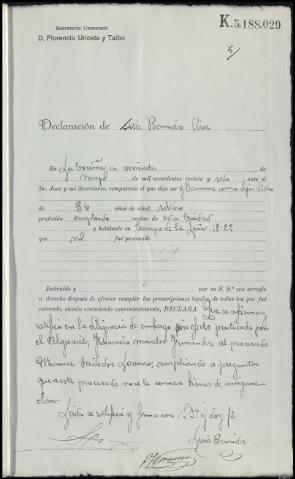 Secretario: Licenciado
D. Florencio Urioste y Taibo
K.5.188.029
5/
Declaración de Luis Bermudez Pérez
En La Coruña a veintisiete de
mayo de mil novecientos treinta y seis ante el
Sr. Juez y mi Secretario, compareció el que dijo ser y llamarse como
de 36 años de edad, soltero
profesión empleado vecino de esta Ciudad
y habitante en de la 18-2º
que no fué procesado
Instruído y por su S. Sª con arreglo
a derecho después de ofrecer cumplir las prescripciones legales, de todas las que fué
enterado, siendo examinado convenientemente, DECLARA: Que se afirma y
ratifica en la diligencia de embargo por efecto practicada por
el Alguacil, Hernández al procesado
Manuel Lorenzo, ampliando a preguntas
que a este procesado no se le conocen bienes de ninguna
clase.
Leída se ratifica y firma con S. Sª y doy fé
Luis Bermudez